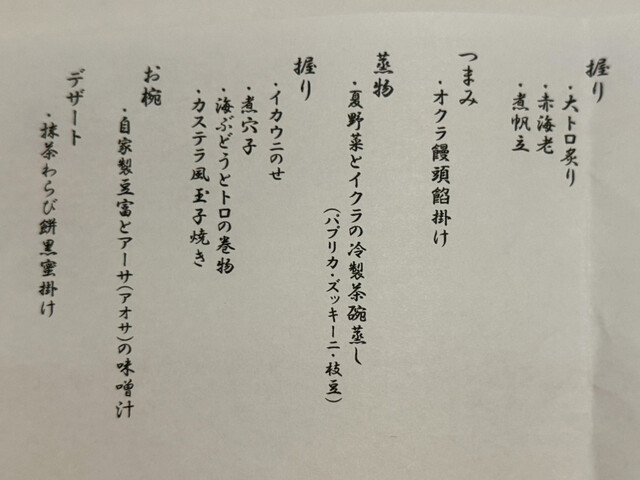 握り
・大トロ炙り
・赤海老
・煮帆立
つまみ
・オクラ饅頭餡掛け
蒸物
・夏野菜とイクラの冷製茶碗蒸し
(パプリカ・ズッキーニ・枝豆)
握り
・イカウニのせ
・煮穴子
・海ぶどうとトロの巻物
・カステラ風玉子焼き
お椀
・自家製豆富とアーサ(アオサ)の味噌汁
デザート
・抹茶わらび餅黒蜜掛け